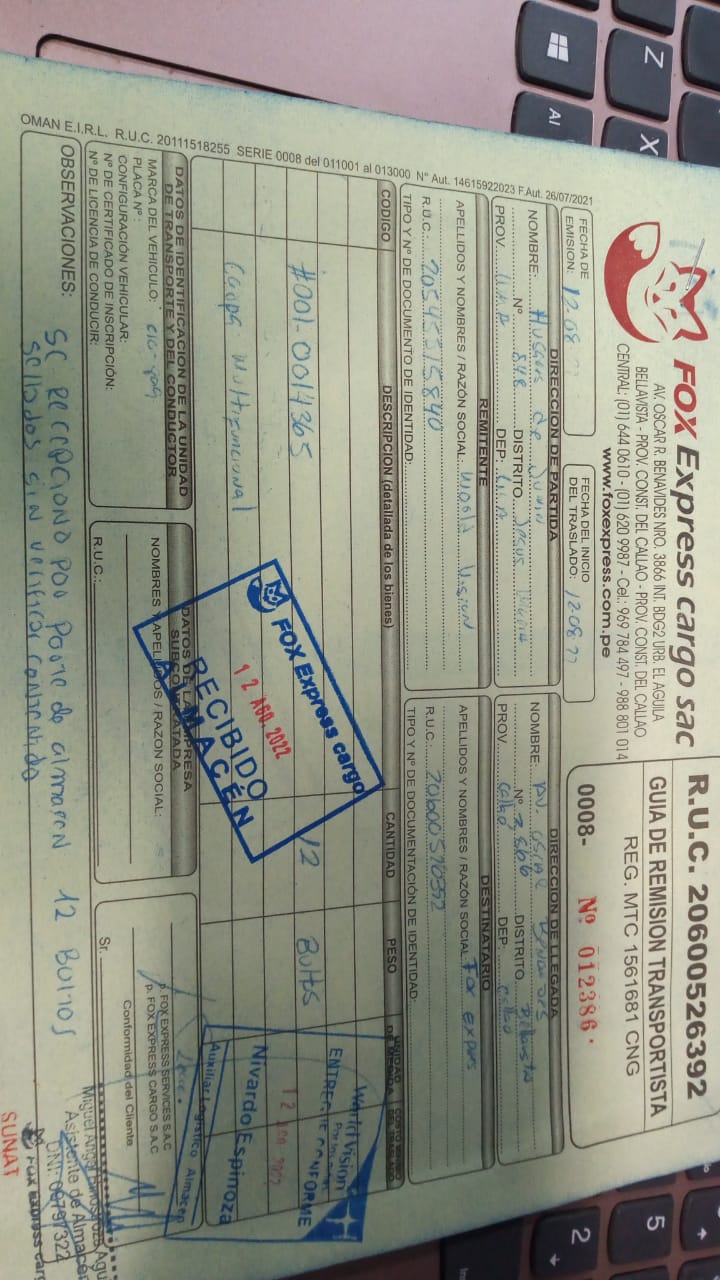 FOX Express cargo sac
AV. OSCAR R. BENAVIDES NRO. 3866 INT. BDG2 URB. EL AGUILA
BELLAVISTA - PROV. CONST. DEL CALLAO - PROV. CONST. DEL CALLAO
CENTRAL: (01) 644 0610 - (01) 620 9987 - Cel.: 969 784 497 - 988 801 014
www.foxexpress.com.pe
R.U.C. 20600526392
GUIA DE REMISION TRANSPORTISTA
REG. MTC 1561681 CNG
0008- Nº 012386
FECHA DE EMISION: 12.08
FECHA DEL INICIO DEL TRASLADO: 12.08.22
DIRECCION DE PARTIDA
NOMBRE: Husares de Junin
Nº 848 DISTRITO Jesus Maria
PROV. Lima DEP. Lima
DIRECCION DE LLEGADA
NOMBRE: AV. Oscar Benavides
Nº 3866 DISTRITO Bellavista
PROV. Callao DEP. Callao
REMITENTE
APELLIDOS Y NOMBRES / RAZÓN SOCIAL: World Vision
R.U.C. 20545315840
TIPO Y Nº DE DOCUMENTO DE IDENTIDAD:
DESTINATARIO
APELLIDOS Y NOMBRES / RAZÓN SOCIAL: Fox expres
R.U.C. 20600526392
TIPO Y Nº DE DOCUMENTACIÓN DE IDENTIDAD:
CODIGO DESCRIPCION (detallada de los bienes) CANTIDAD PESO UNIDAD
#001-0014365 12 Bultos
Multifuncional
FOX Express cargo
12 AGO. 2022
RECIBIDO
ALMACÉN
World Vision
ENTREGUE CONFORME
Nivardo Espinoza
Auxiliar Logístico Almacen
DATOS DE IDENTIFICACION DE LA UNIDAD
DE TRANSPORTE Y DEL CONDUCTOR
MARCA DEL VEHICULO:
PLACA Nº:
CONFIGURACIÓN VEHICULAR:
Nº DE CERTIFICADO DE INSCRIPCIÓN:
Nº DE LICENCIA DE CONDUCIR:
DATOS DE LA EMPRESA
SUBCONTRATADA
NOMBRES Y APELLIDOS / RAZON SOCIAL:
R.U.C.:
p. FOX EXPRESS SERVICES S.A.C
p. FOX EXPRESS CARGO S.A.C
Conformidad del Cliente
Sr.
OBSERVACIONES: Se recepciono por parte de almacen 12 Bultos
sellados sin verificar contenido
Miguel Angel
Asistente de Almacén
Fox Express
SUNAT
OMAN E.I.R.L. R.U.C. 20111518255 SERIE 0008 del 011001 al 013000 N° Aut. 14615922023 F.Aut. 26/07/2021
Z
X
Al
5
2